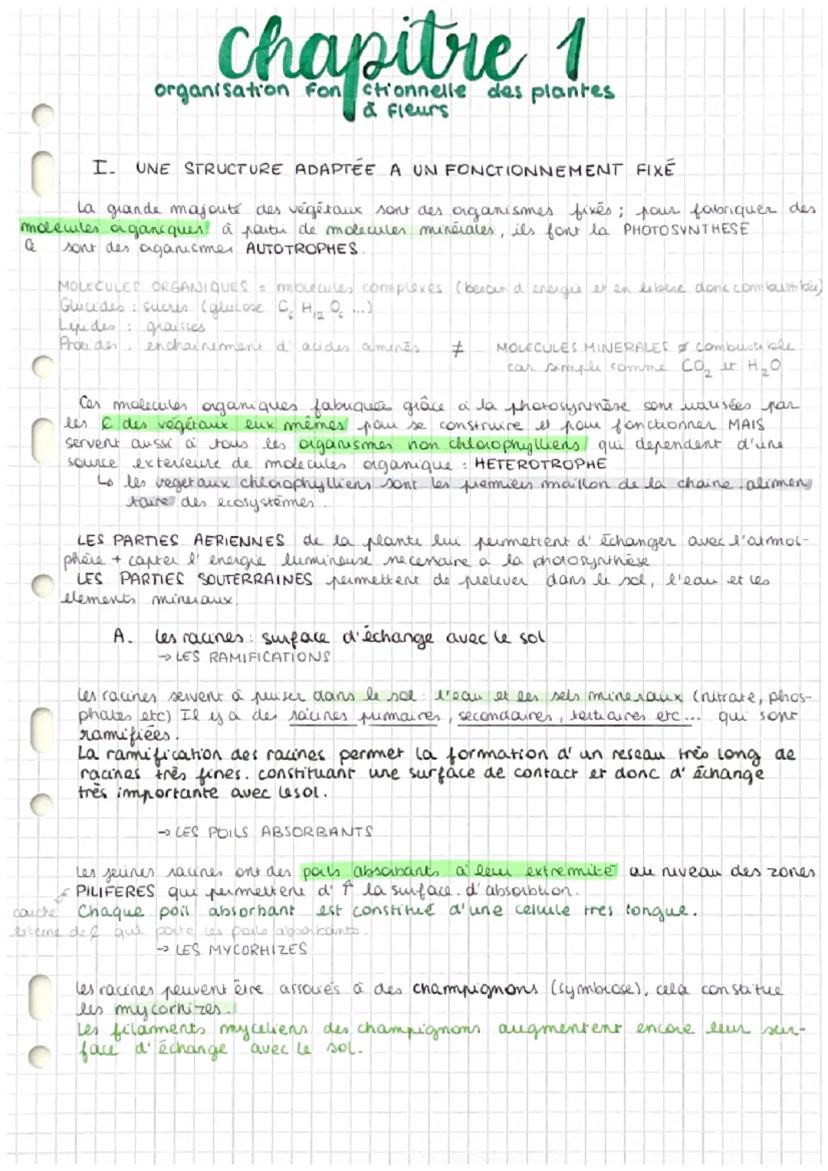 chapitre 1
organisation fonctionnelle des plantes
à fleurs
I. UNE STRUCTURE ADAPTÉE A UN FONCTIONNEMENT FIXÉ
La grande majouté des végétaux sont des organismes fixés ; pour fabriquer des
molecules organiques à partir de molecules minérales, ils font la PHOTOSYNTHESE
Ce sont des organismes AUTOTROPHES.
MOLECULES ORGANIQUES = molecules complexes (besoin d'energie et en libere donc combustible)
Glucides : sucres (glucose C6 H12 O6 ...)
Lipides : graisses
Protides : enchainement d'acides aminés ≠ MOLECULES MINERALES ≠ combustible
car simple comme CO2 et H2O
Ces molecules organiques fabriquées grâce à la photosynthèse sont utilisées par
les C des végétaux eux mêmes pour se construire et pour fonctionner MAIS
servent aussi à tous les organismes non chlorophylliens qui dependent d'une
source exterieure de molecules organique : HETEROTROPHE
↳ les vegetaux chlorophylliens sont les premiers maillon de la chaine alimen
taire des ecosystèmes.
LES PARTIES AERIENNES de la plante lui permettent d'échanger avec l'atmos-
phère + capter l'énergie lumineuse necessaire a la photosynthèse
LES PARTIES SOUTERRAINES permettent de prelever dans le sol, l'eau et les
elements mineraux.
A. Les racines : surface d'échange avec le sol
→ LES RAMIFICATIONS
Les racines servent à puiser dans le sol : l'eau et les sels mineraux (nitrate, phos-
phates etc) Il y a des racines primaires, secondaires, tertiaires etc... qui sont
ramifiées.
La ramification des racines permet la formation d'un reseau très long de
racines très fines. constituant une surface de contact et donc d'échange
très importante avec le sol.
→ LES POILS ABSORBANTS
Les jeunes racines ont des poils absorbants à leur extremité au niveau des zones
PILIFERES qui permettent d'↑ la surface d'absorbtion.
couche Chaque poil absorbant est constitué d'une cellule tres longue.
externe de C qui porte les poils absorbants.
→ LES MYCORHIZES
Les racines peuvent être associés à des champignons (symbiose), cela constitue
les mycorhizes.
Les filaments myceliens des champignons augmentent encore leur sur-
face d'échange avec le sol.